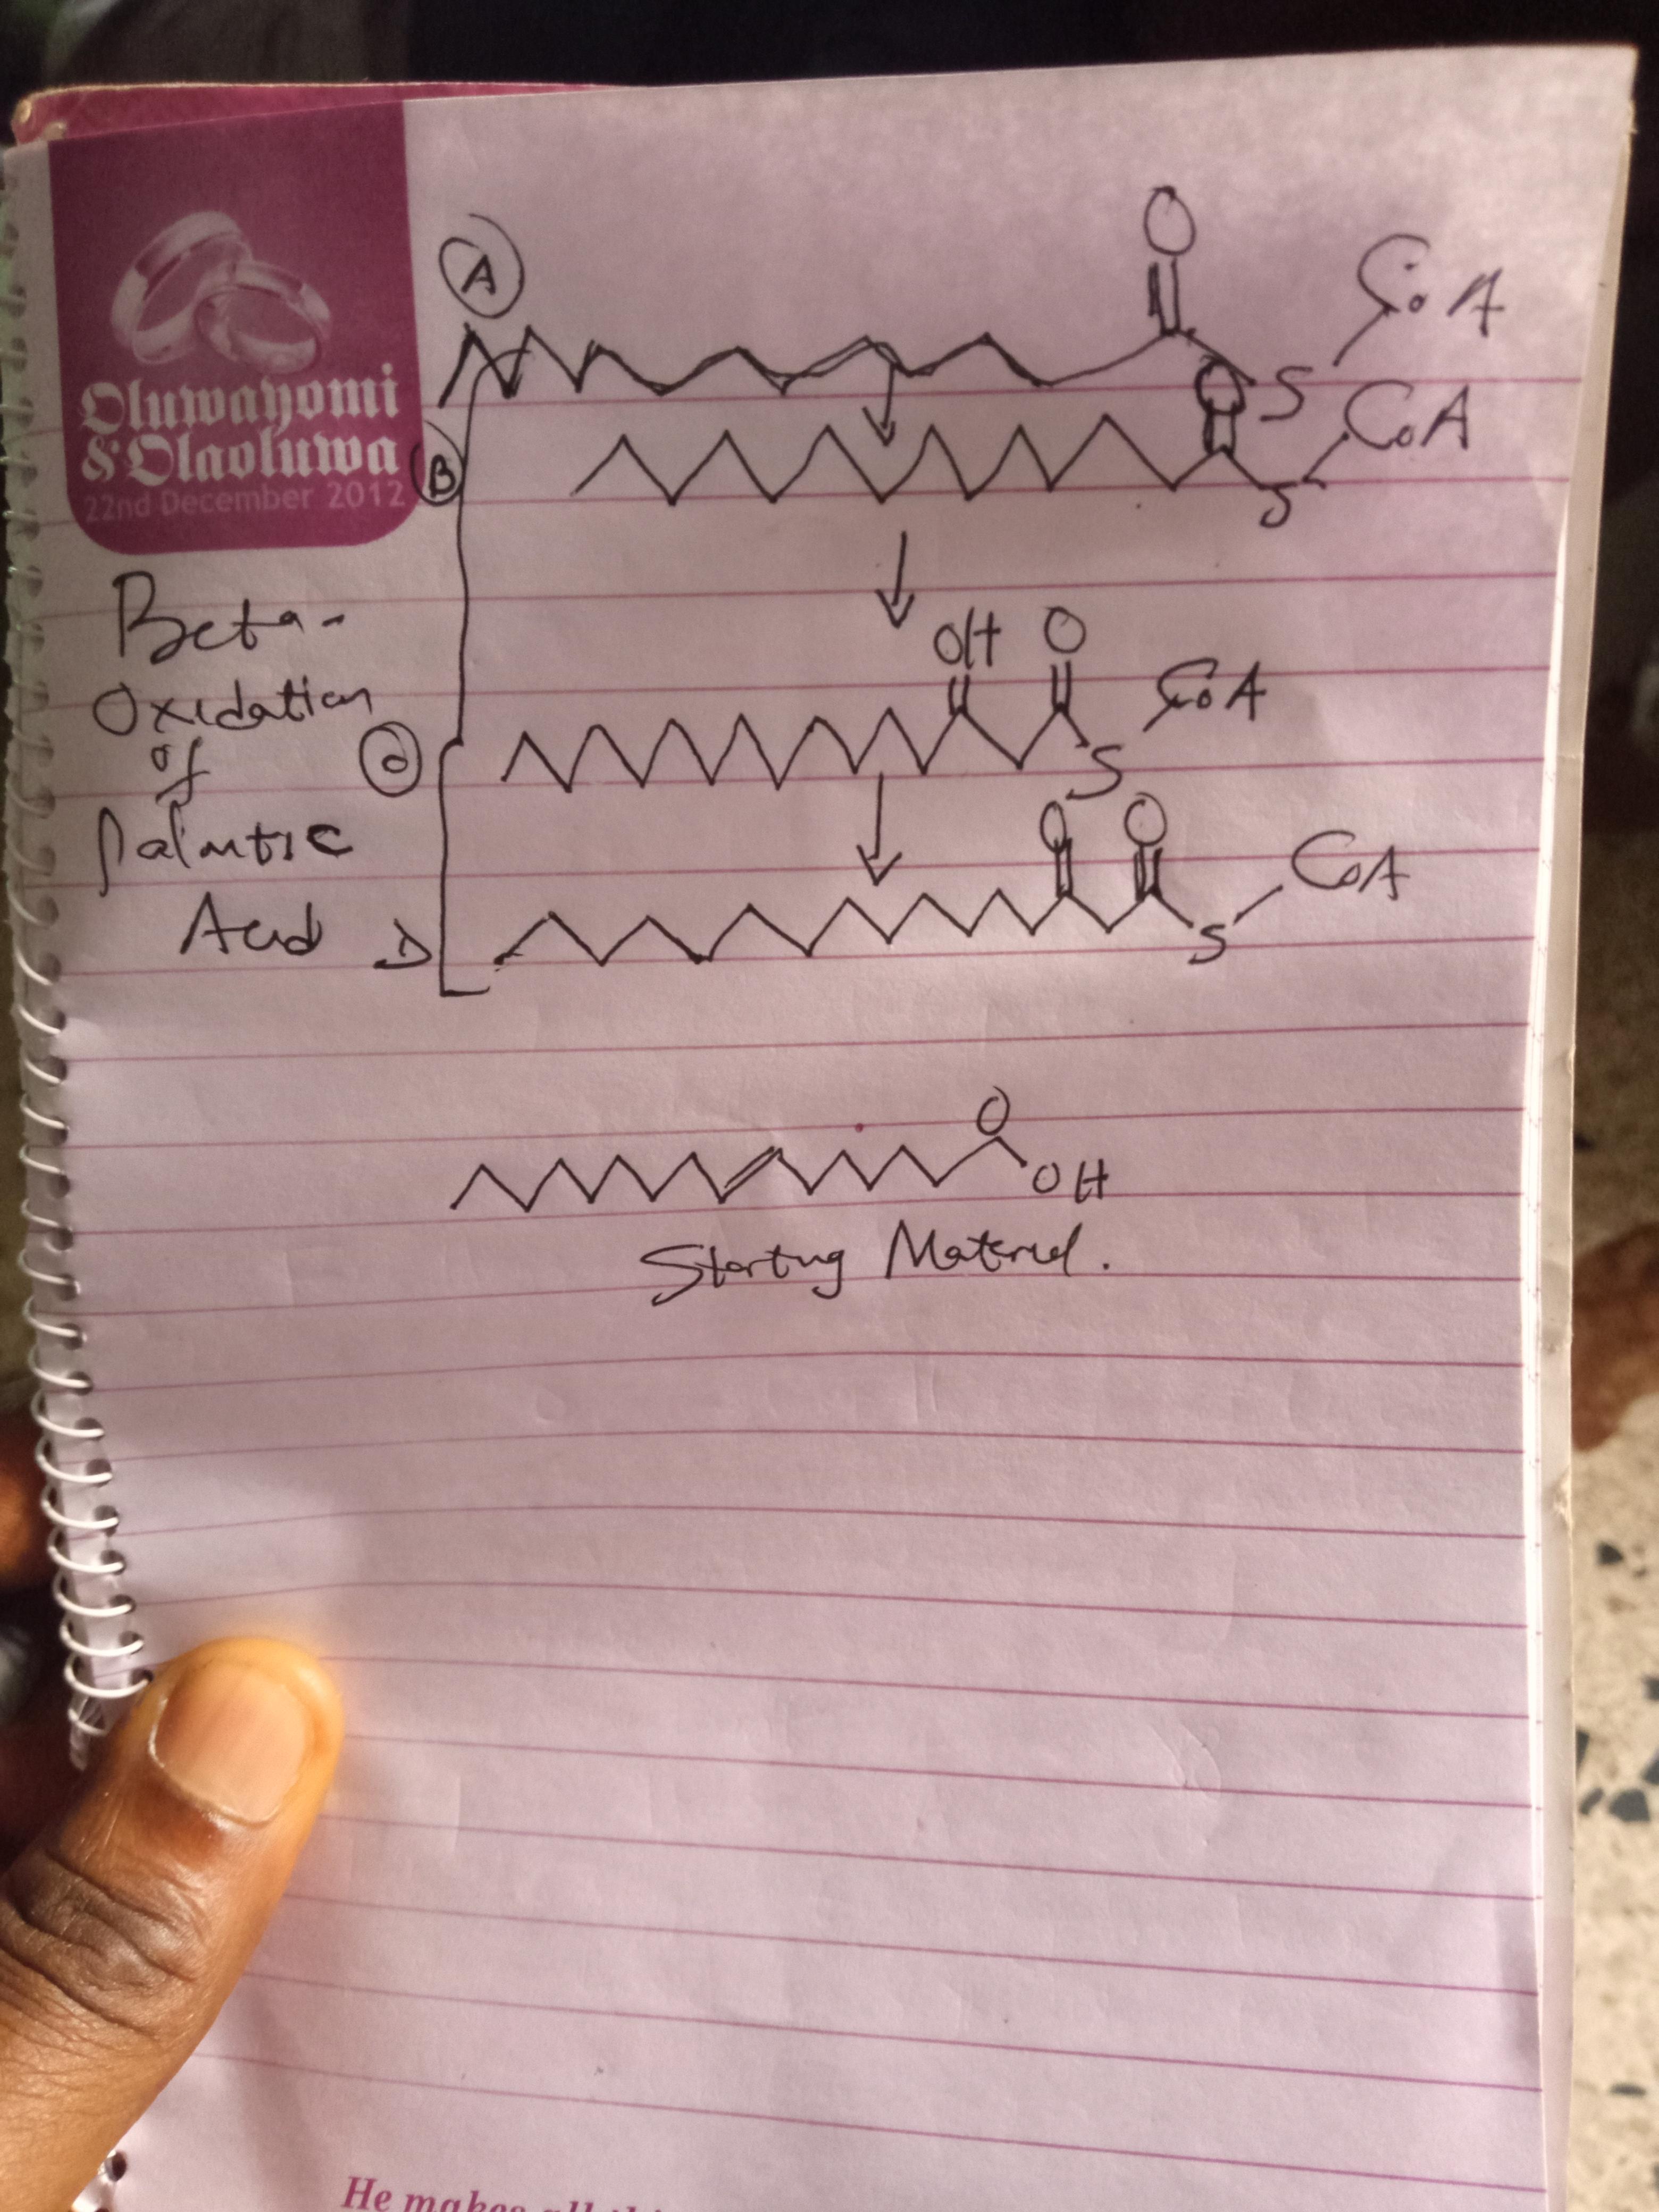 Oluwayomi
& Olaoluwa
22nd December 2012
A
O
CoA
S
B
O
CoA
S
Beta-
Oxidation
of
Palmtic
Acid
C
OH O
CoA
S
D
O O
CoA
S
O
OH
Starting Material.
He makes all